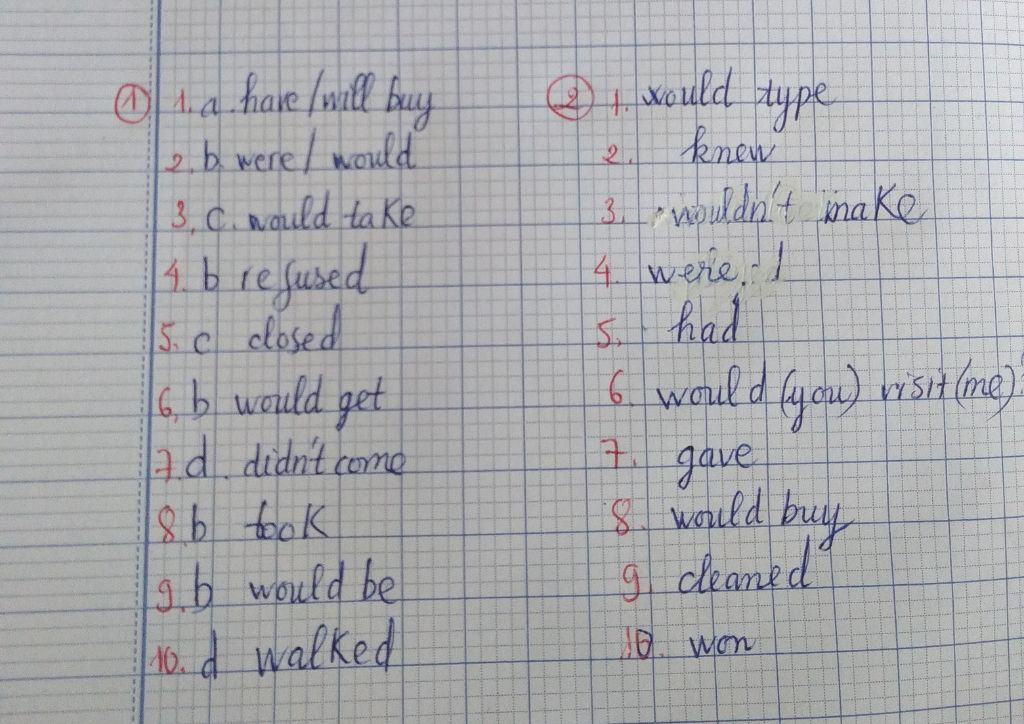 ① 1. a. have / will buy
2. b. were / would
3, c. would take
4. b refused
5. c closed
6, b would get
7. d. didn't come
8. b took
9. b would be
10. d walked
② 1. would type
2. knew
3. wouldn't make
4. were
5. had
6. would (you) visit (me)?
7. gave
8. would buy
9. cleaned
10. won